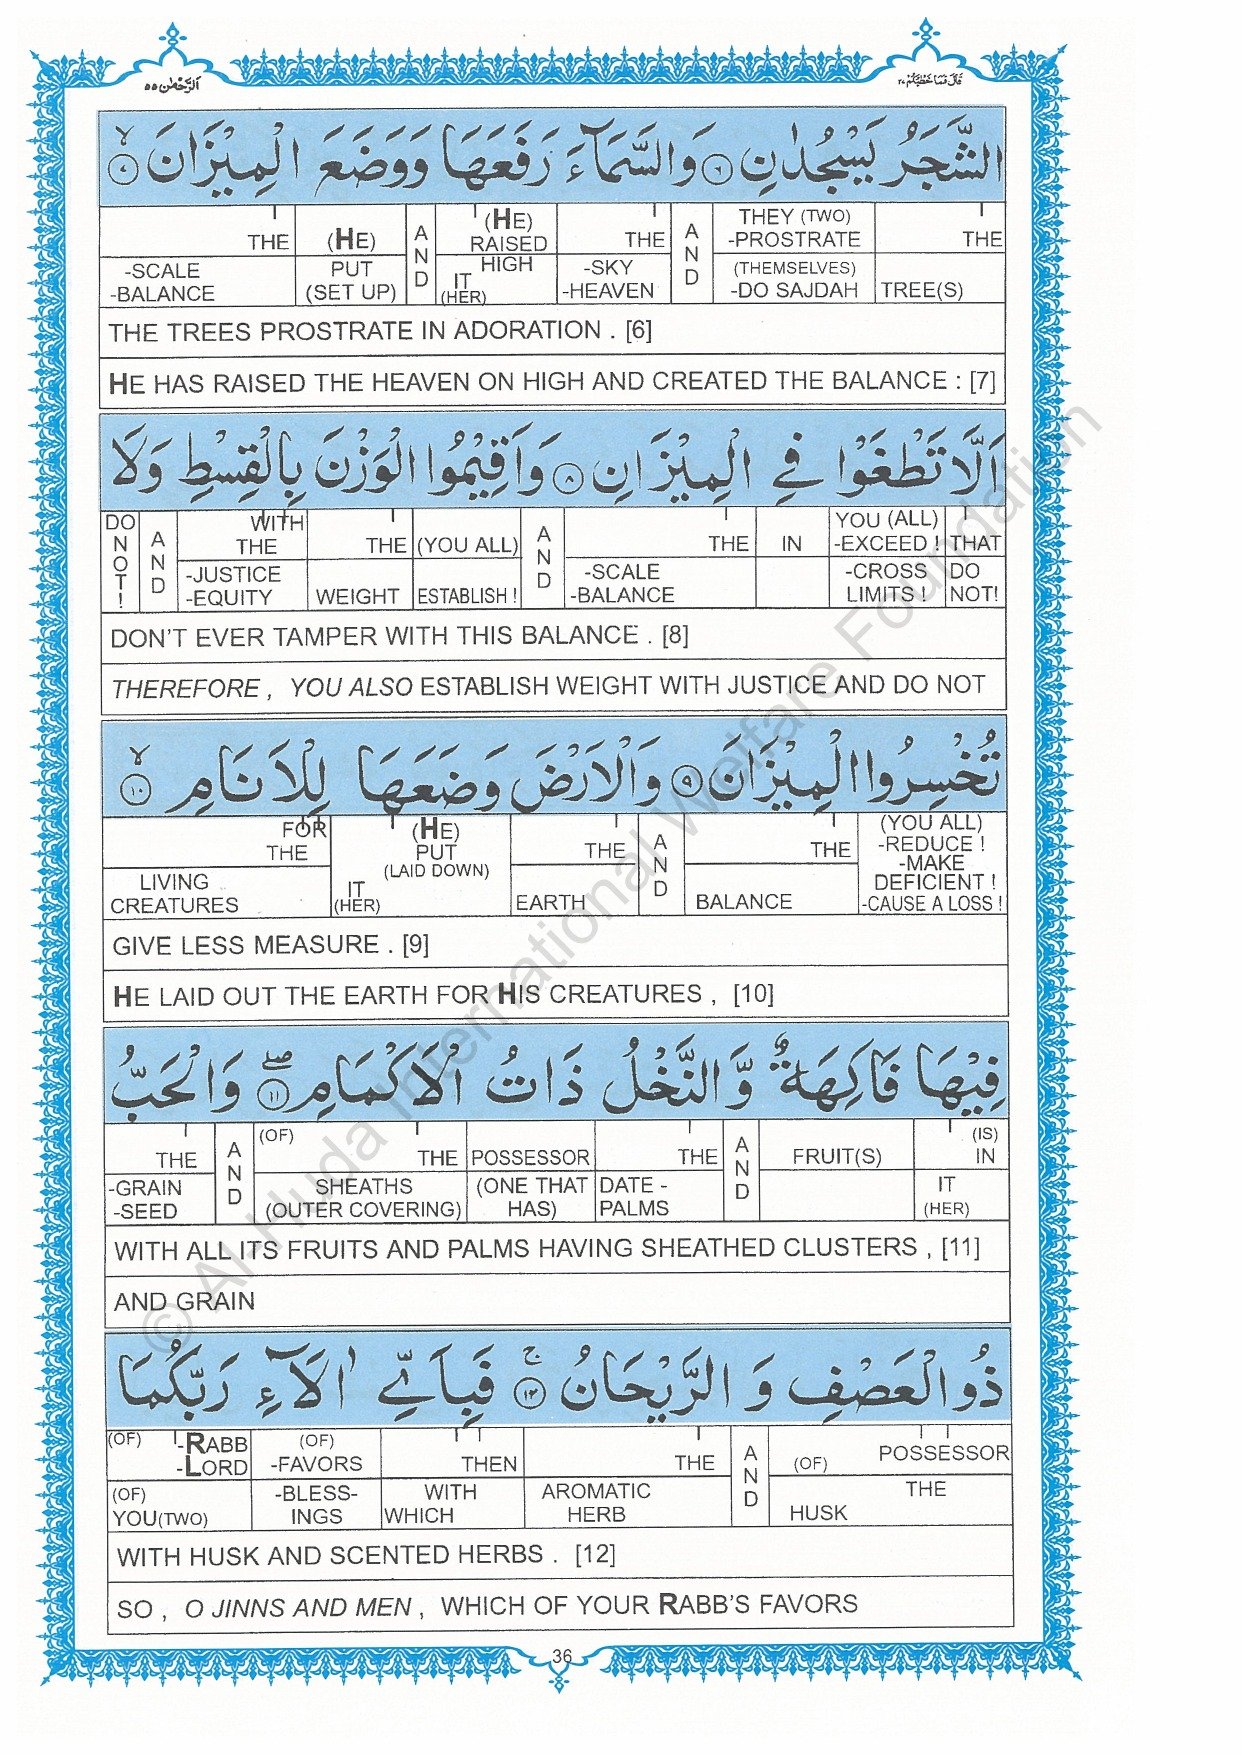 اَلرَّحْمٰن ٥٥
قَالَ فَمَا خَطْبُكُمْ ٢٧
الشَّجَرُ يَسْجُدٰنِ ٦ وَالسَّمَآءَ رَفَعَهَا وَوَضَعَ الْمِيْزَانَ ٧ لا
THE TREE(S)
THEY (TWO) -PROSTRATE (THEMSELVES) -DO SAJDAH
AND
THE -SKY -HEAVEN
(HE) RAISED HIGH IT (HER)
AND
(HE) PUT (SET UP)
THE -SCALE -BALANCE
THE TREES PROSTRATE IN ADORATION . [6]
HE HAS RAISED THE HEAVEN ON HIGH AND CREATED THE BALANCE : [7]
اَلَّا تَطْغَوْا فِي الْمِيْزَانِ ٨ وَاَقِيْمُوا الْوَزْنَ بِالْقِسْطِ وَلَا
THAT DO NOT!
YOU (ALL) -EXCEED ! -CROSS LIMITS !
IN
THE -SCALE -BALANCE
AND
(YOU ALL) ESTABLISH !
THE WEIGHT
WITH THE -JUSTICE -EQUITY
AND
DO NOT!
DON'T EVER TAMPER WITH THIS BALANCE . [8]
THEREFORE , YOU ALSO ESTABLISH WEIGHT WITH JUSTICE AND DO NOT
تُخْسِرُوا الْمِيْزَانَ ٩ وَالْاَرْضَ وَضَعَهَا لِلْاَنَامِ ١٠ لا
(YOU ALL) -REDUCE ! -MAKE DEFICIENT ! -CAUSE A LOSS !
THE BALANCE
AND
THE EARTH
(HE) PUT (LAID DOWN) IT (HER)
FOR THE LIVING CREATURES
GIVE LESS MEASURE . [9]
HE LAID OUT THE EARTH FOR HIS CREATURES , [10]
فِيْهَا فَاكِهَةٌ وَّالنَّخْلُ ذَاتُ الْاَكْمَامِ ١١ صلے وَالْحَبُّ
(IS) IN IT (HER)
FRUIT(S)
AND
THE DATE - PALMS
POSSESSOR (ONE THAT HAS)
(OF) THE SHEATHS (OUTER COVERING)
AND
THE -GRAIN -SEED
WITH ALL ITS FRUITS AND PALMS HAVING SHEATHED CLUSTERS , [11]
AND GRAIN
ذُو الْعَصْفِ وَ الرَّيْحَانُ ١٢ ج فَبِاَيِّ اٰلَآءِ رَبِّكُمَا
POSSESSOR (OF) THE HUSK
AND
THE AROMATIC HERB
THEN WITH WHICH
(OF) -FAVORS -BLESS-INGS
(OF) -RABB -LORD (OF) YOU(TWO)
WITH HUSK AND SCENTED HERBS . [12]
SO , O JINNS AND MEN , WHICH OF YOUR RABB'S FAVORS
36
© Al-Huda International Welfare Foundation